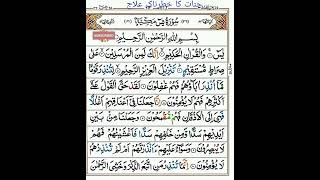 جنات کا خطرناک علاج
سُوْرَةُ يٰسٓ مَكِّيَّةٌ
بِسْمِ اللّٰهِ الرَّحْمٰنِ الرَّحِيْمِ
يٰسٓ ۚ وَالْقُرْاٰنِ الْحَكِيْمِ ۙ اِنَّكَ لَمِنَ الْمُرْسَلِيْنَ ۙ عَلٰى
صِرَاطٍ مُّسْتَقِيْمٍ ؕ تَنْزِيْلَ الْعَزِيْزِ الرَّحِيْمِ ۙ لِتُنْذِرَ قَوْمًا
مَّاۤ اُنْذِرَ اٰبَآؤُهُمْ فَهُمْ غٰفِلُوْنَ لَقَدْ حَقَّ الْقَوْلُ عَلٰۤى
اَكْثَرِهِمْ فَهُمْ لَا يُؤْمِنُوْنَ اِنَّا جَعَلْنَا فِيْۤ اَعْنَاقِهِمْ اَغْلٰلًا
فَهِيَ اِلَى الْاَذْقَانِ فَهُمْ مُّقْمَحُوْنَ وَجَعَلْنَا مِنْۢ بَيْنِ
اَيْدِيْهِمْ سَدًّا وَّمِنْ خَلْفِهِمْ سَدًّا فَاَغْشَيْنٰهُمْ فَهُمْ
لَا يُبْصِرُوْنَ وَسَوَآءٌ عَلَيْهِمْ ءَاَنْذَرْتَهُمْ اَمْ لَمْ تُنْذِرْهُمْ
لَا يُؤْمِنُوْنَ اِنَّمَا تُنْذِرُ مَنِ اتَّبَعَ الذِّكْرَ وَخَشِيَ الرَّحْمٰنَ